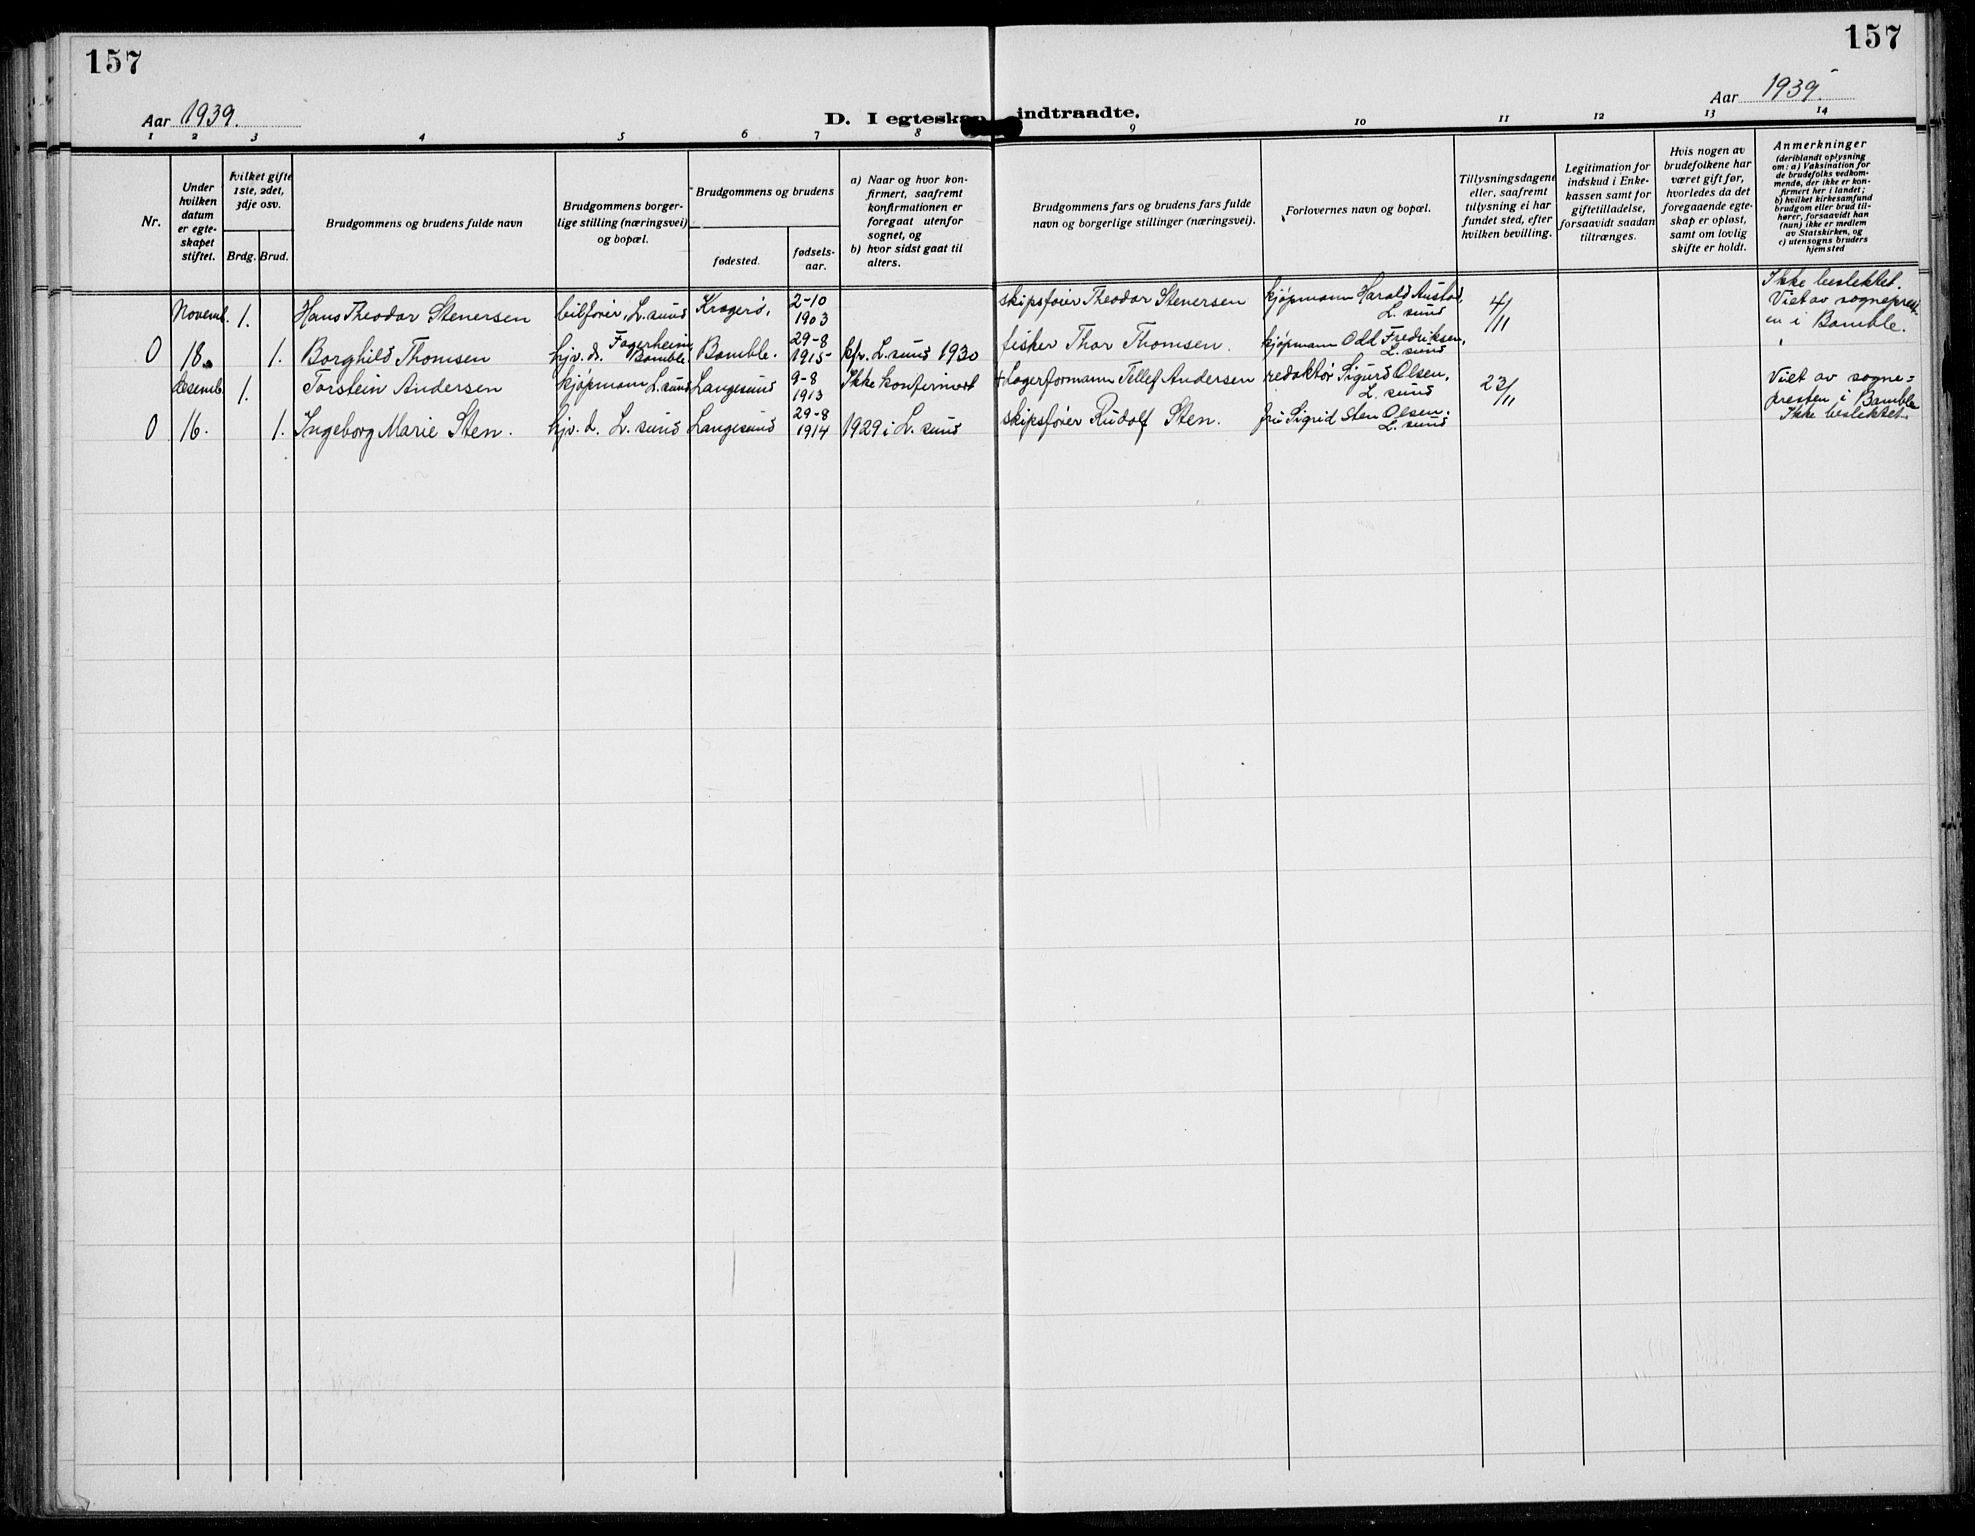 157
157
Aar 1939.
D. I egteskap indtraadte.
Aar 1939.
1 2 3 4 5 6 7 8 9 10 11 12 13 14
Nr.
Under
hvilken
datum
er egte-
skapet
stiftet.
hvilket gifte
1ste, 2det,
3dje osv.
Brdg. Brud.
Brudgommens og brudens fulde navn
Brudgommens borger-
lige stilling (næringsvei)
og bopæl.
Brudgommens og brudens
fødested.
fødsels-
aar.
a) Naar og hvor kon-
firmert, saafremt
konfirmationen er
foregaat utenfor
sognet, og
b) hvor sidst gaat til
alters.
Brudgommens fars og brudens fars fulde
navn og borgerlige stillinger (næringsvei).
Forlovernes navn og bopæl.
Tillysningsdagene
eller, saafremt
tillysning ei har
fundet sted, efter
hvilken bevilling.
Legitimation for
indskud i Enke-
kassen samt for
giftetilladelse,
forsaavidt saadan
tiltrænges.
Hvis nogen av
brudefolkene har
været gift før,
hvorledes da det
foregaaende egte-
skap er opløst,
samt om lovlig
skifte er holdt.
Anmerkninger
(deriblandt oplysning
om: a) Vaksination for
de brudefolks vedkom-
mende, der ikke er kon-
firmert her i landet;
b) hvilket kirkesamfund
brudgom eller brud til-
hører, forsaavidt han
(hun) ikke er medlem
av Statskirken, og
c) utensogns bruders
hjemsted
Novemb. 1. Hans Theodor Stenersen bilfører, L.sund Kragerø, 2-10 1903 skipsfører Theodor Stenersen kjøpmann Harald Austad, L. sund 4/11 Ikke beslektet. Viet av sogneprest-
en i Bamble.
0 18. 1. Borghild Thomsen hjv. d. Fagerheim Bamble Bamble. 29-8 1915 kfr. L. sund 1930 fisker Thor Thomsen. kjøpmann Odd Fredriksen, L. sund
desemb. 1. Torstein Andersen kjøpmann L.sund Langesund 9-8 1913 Ikke konfirmert + Lagerformann Tellef Andersen redaktør Sigurd Olsen, L. sund 23/11 Viet av sogne=
presten i Bamble
0 16. 1. Ingeborg Marie Sten. hjv. d. L. sund Langesund 29-8 1914 1929 i L. sund skipsfører Rudolf Sten. fru Sigrid Sten Olsen, L. sund Ikke beslektet.